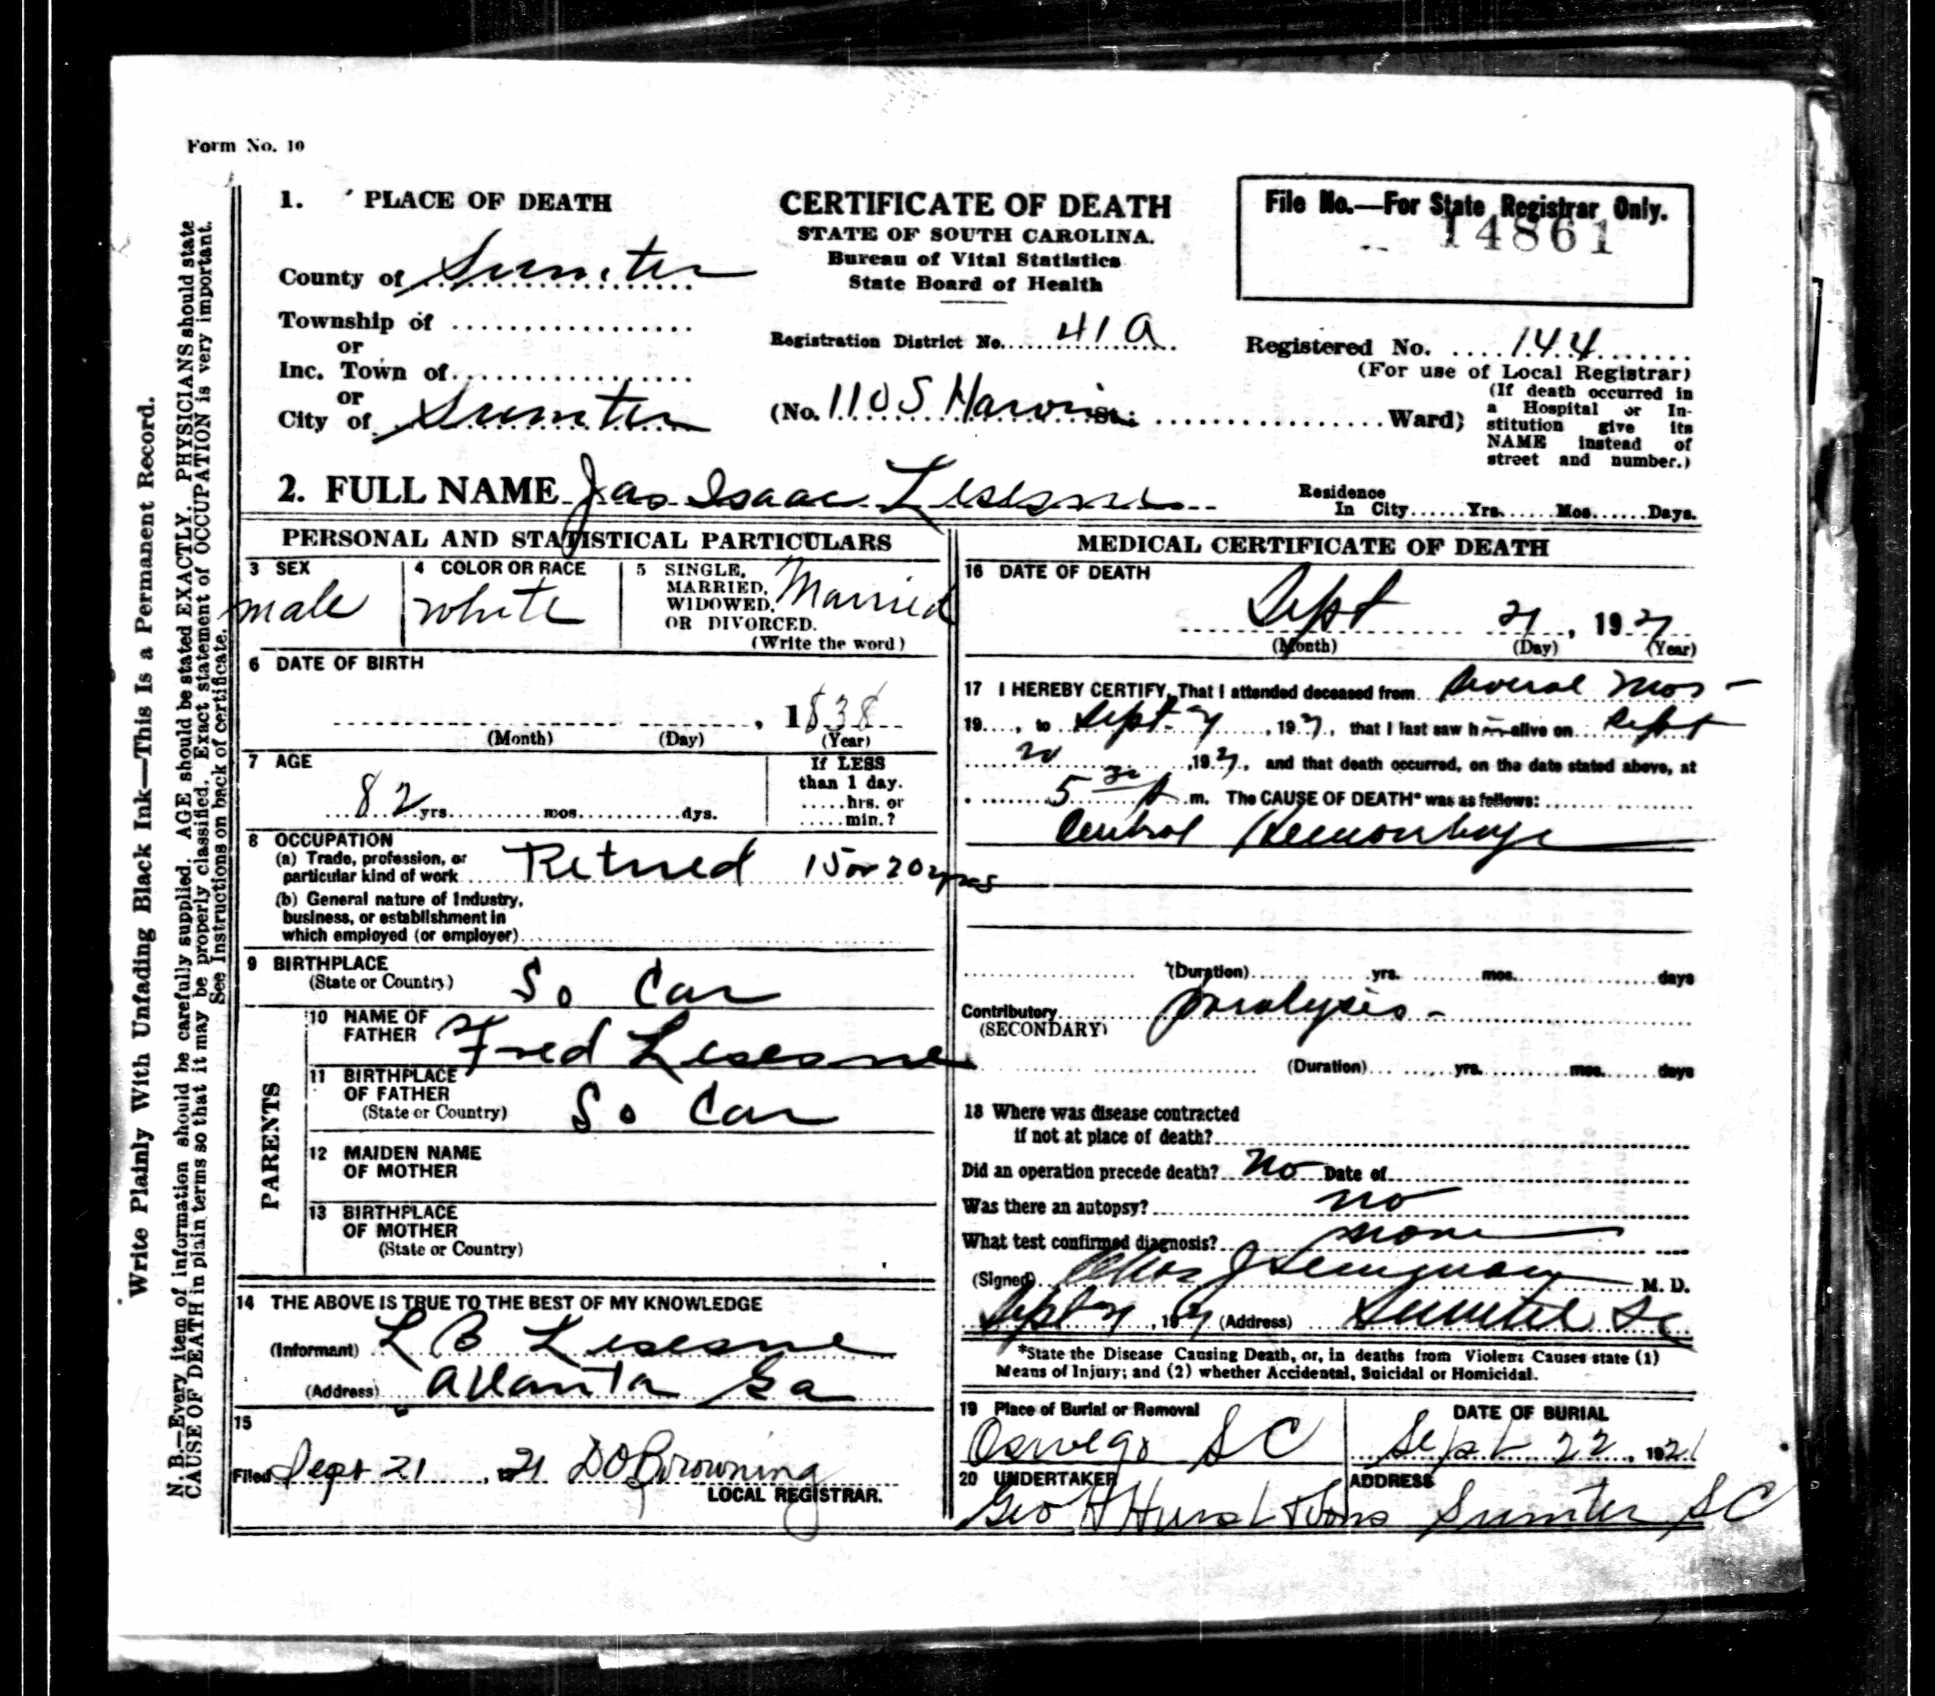 Form No. 10
1. PLACE OF DEATH
County of Sumter
Township of
or
Inc. Town of
or
City of Sumter
CERTIFICATE OF DEATH
STATE OF SOUTH CAROLINA.
Bureau of Vital Statistics
State Board of Health
Registration District No. 41A
(No. 110 S Marvin St.; Ward)
File No.—For State Registrar Only.
14861
Registered No. 144
(For use of Local Registrar)
(If death occurred in
a Hospital or In-
stitution give its
NAME instead of
street and number.)
2. FULL NAME Jas Isaac Lesesne
Residence
In City Yrs. Mos. Days.
PERSONAL AND STATISTICAL PARTICULARS
3 SEX
male
4 COLOR OR RACE
white
5 SINGLE,
MARRIED,
WIDOWED,
OR DIVORCED.
(Write the word)
Married
6 DATE OF BIRTH
, 1838
(Month) (Day) (Year)
7 AGE
82 yrs. mos. dys.
If LESS
than 1 day.
hrs. or
min.?
8 OCCUPATION
(a) Trade, profession, or
particular kind of work Retired 15 or 20 yrs
(b) General nature of Industry,
business, or establishment in
which employed (or employer)
9 BIRTHPLACE
(State or Country) So Car
PARENTS
10 NAME OF
FATHER Fred Lesesne
11 BIRTHPLACE
OF FATHER
(State or Country) So Car
12 MAIDEN NAME
OF MOTHER
13 BIRTHPLACE
OF MOTHER
(State or Country)
14 THE ABOVE IS TRUE TO THE BEST OF MY KNOWLEDGE
(Informant) L B Lesesne
(Address) Atlanta Ga
15
Filed Sept 21, 1921 D O Browning
LOCAL REGISTRAR.
MEDICAL CERTIFICATE OF DEATH
16 DATE OF DEATH
Sept 21, 1921
(Month) (Day) (Year)
17 I HEREBY CERTIFY, That I attended deceased from several mos-
19 , to Sept 21, 1921, that I last saw him alive on Sept
20, 1921, and that death occurred, on the date stated above, at
5 30 m. The CAUSE OF DEATH* was as follows:
Cerebral Hemorrhage
(Duration) yrs. mos. days
Contributory paralysis-
(SECONDARY)
(Duration) yrs. mos. days
18 Where was disease contracted
if not at place of death?
Did an operation precede death? No Date of
Was there an autopsy? no
What test confirmed diagnosis? none
(Signed) M. D.
Sept 21, 1921 (Address) Sumter SC
*State the Disease Causing Death, or, in deaths from Violent Causes state (1)
Means of Injury; and (2) whether Accidental, Suicidal or Homicidal.
19 Place of Burial or Removal
Oswego SC
DATE OF BURIAL
Sept 22, 1921
20 UNDERTAKER
Geo H Hurst & Sons
ADDRESS
Sumter SC
Write Plainly With Unfading Black Ink—This Is a Permanent Record.
N. B.—Every item of information should be carefully supplied. AGE should be stated EXACTLY. PHYSICIANS should state
CAUSE OF DEATH in plain terms so that it may be properly classified. Exact statement of OCCUPATION is very important.
See Instructions on back of certificate.